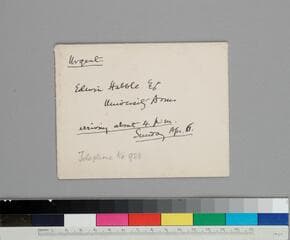 Urgent
Edwin Hubble Esq
University Arms
arriving about 4. p.m.
Sunday Apr. 6.
Telephone No